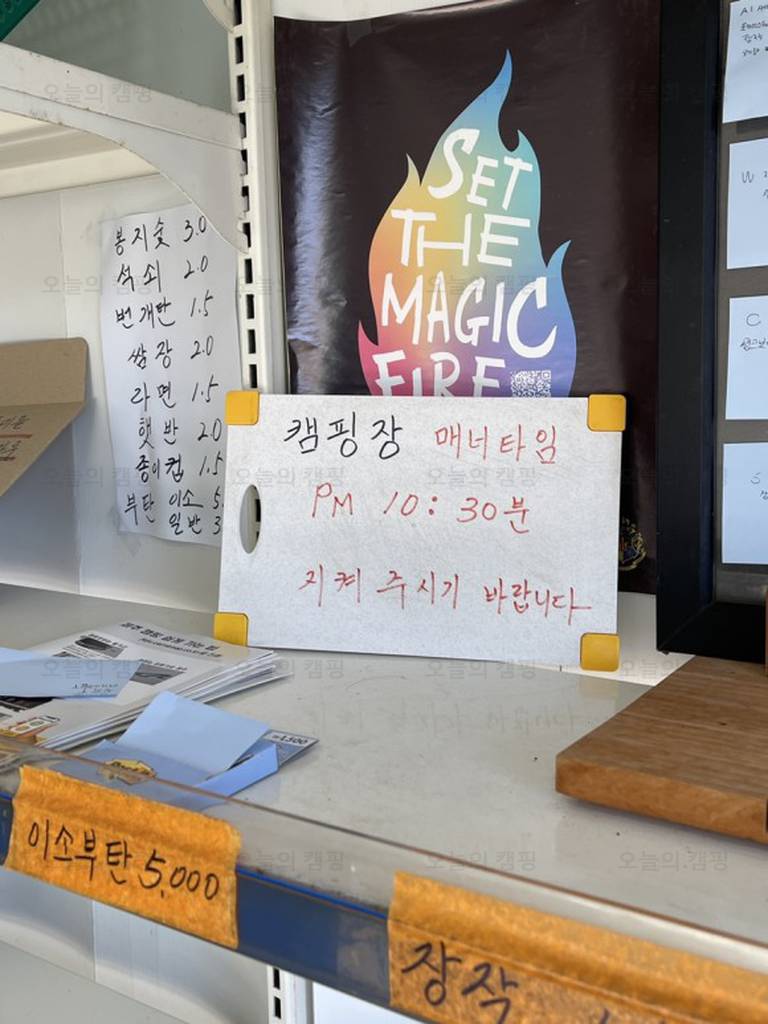 봉지숯 3.0
석쇠 2.0
번개탄 1.5
쌈장 2.0
라면 1.5
햇반 2.0
종이컵 1.5
부탄 이소 5.
일반 3
SET
THE
MAGIC
FIRE
캠핑장 매너타임
PM 10:30분
지켜 주시기 바랍니다
이소부탄 5,000
장작
오늘의 캠핑